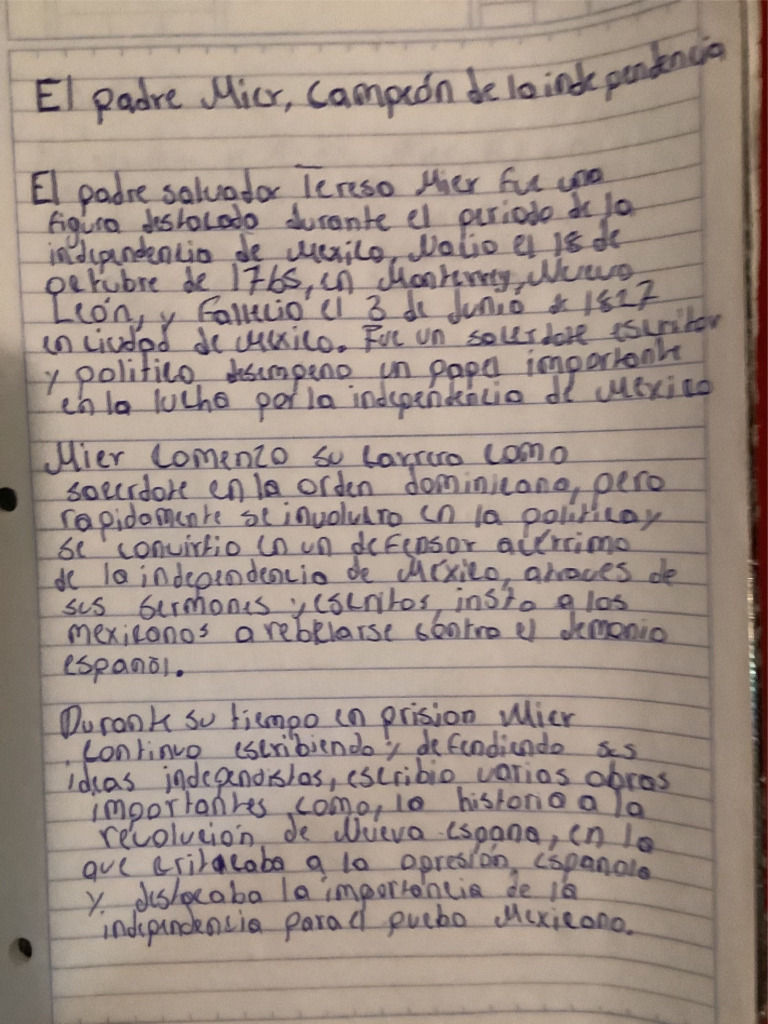 El padre Mier, Campeón de la independencia
El padre salvador Tereso Mier fue una
figura destacado durante el periodo de la
independencia de Mexico, Nacio el 18 de
octubre de 1765, en Monterrey, Nuevo
León, y Fallecio el 3 de Junio de 1827
en ciudad de Mexico. Fue un sacerdote escritor
y politico desempeno un papel importante
en la lucha por la independencia de Mexico
Mier comenzo su carrera como
sacerdote en la orden dominicana, pero
rapidamente se involucro en la politica y
se convirtio en un defensor acerrimo
de la independencia de Mexico, atraves de
sus sermones y escritos, insto a los
mexicanos a rebelarse contra el demonio
español.
Durante su tiempo en prision Mier
continuo escribiendo y defendiendo sus
ideas independistas, escribio varias obras
importantes como, la historia a la
revolución de Nueva espana, en la
que critacaba a la opresión española
y destacaba la importancia de la
independencia para el puebo Mexicano.